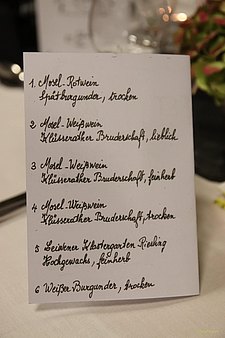 1. Mosel-Rotwein
Spätburgunder, trocken
2 Mosel-Weißwein
Klüsserather Bruderschaft, lieblich
3 Mosel-Weißwein
Klüsserather Bruderschaft, feinherb
4 Mosel-Weißwein
Klüsserather Bruderschaft, trocken
5 Leiwener Klostergarten Riesling
Hochgewächs, feinherb
6 Weißer Burgunder, trocken